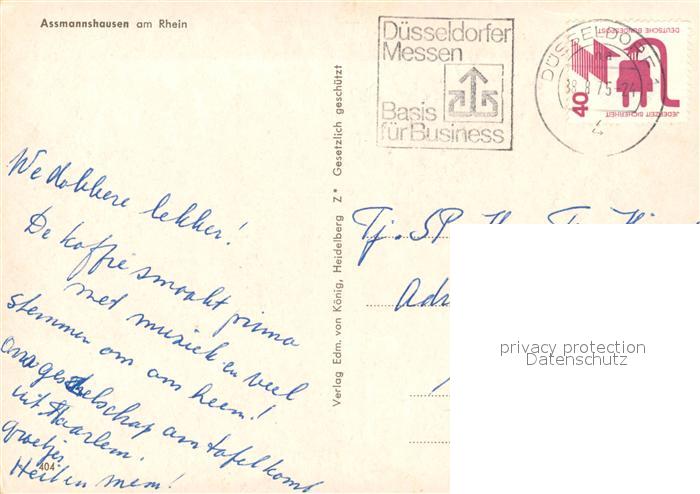 Assmannshausen am Rhein
Düsseldorfer
Messen
Basis
für Business
DÜSSELDORF
DEUTSCHE BUNDESPOST
40
JEDERZEIT SICHERHEIT
Verlag Edm. von König, Heidelberg Z* Gesetzlich geschützt
We dobbere lekker!
De koffie smaakt prima
met muziek en veel
stemmen om ons heen!
Ons gezelschap aan tafel komt
uit Haarlem.
groetjes
Heit en mem!
404
Tj. SP
privacy protection
Datenschutz